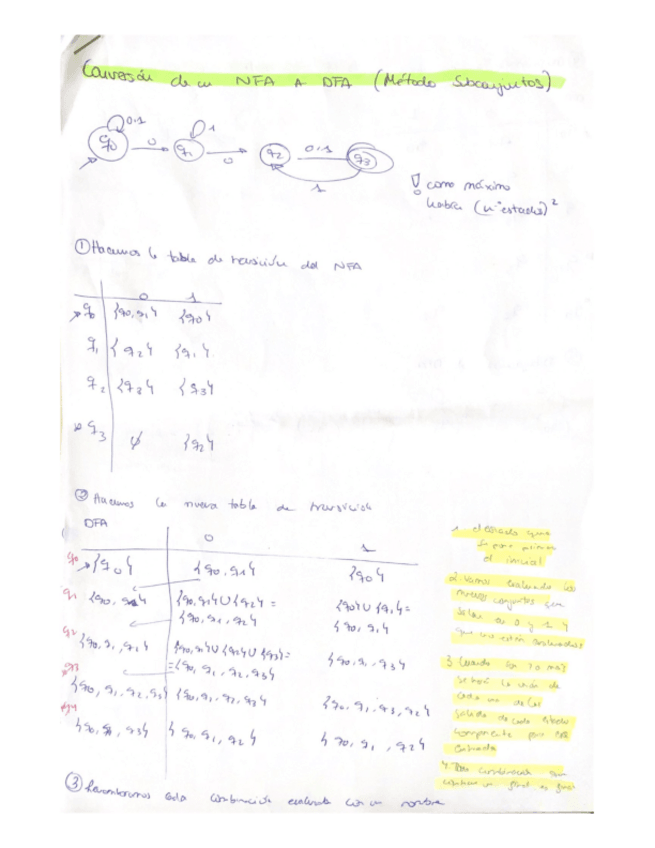 Conversión de un NFA A DFA (Método Subconjuntos)
0,1 1
q0 0 q1 0 q2 0,1 q3
1
! como máximo
habra (nº estados)²
① Hacemos la tabla de transición del NFA
0 1
→ q0 {q0, q1} {q0}
q1 {q2} {q1}
q2 {q3} {q3}
* q3 ∅ {q2}
② Hacemos la nueva tabla de transición
DFA
0 1
q0 → {q0} {q0, q1} {q0}
q1 {q0, q1} {q0, q1} ∪ {q2} = {q0} ∪ {q1} =
{q0, q1, q2} {q0, q1}
q2 {q0, q1, q2} {q0, q1} ∪ {q2} ∪ {q3} =
= {q0, q1, q2, q3} {q0, q1, q3}
q3 {q0, q1, q2, q3} {q0, q1, q2, q3} {q0, q1, q3, q2}
q4 {q0, q1, q3} {q0, q1, q2} {q0, q1, q2}
1 el estado que
se pone primero
el inicial
2. Vamos evaluando los
nuevos conjuntos que
salen en 0 y 1 y
que no estén evaluados
3. Cuando son 2 o más
se hará la unión de
cada una de las
salidas de cada estado
componente para esa
entrada
4. Toda combinación que
contiene un final es final
③ Renombramos cada combinación evaluada con un nombre